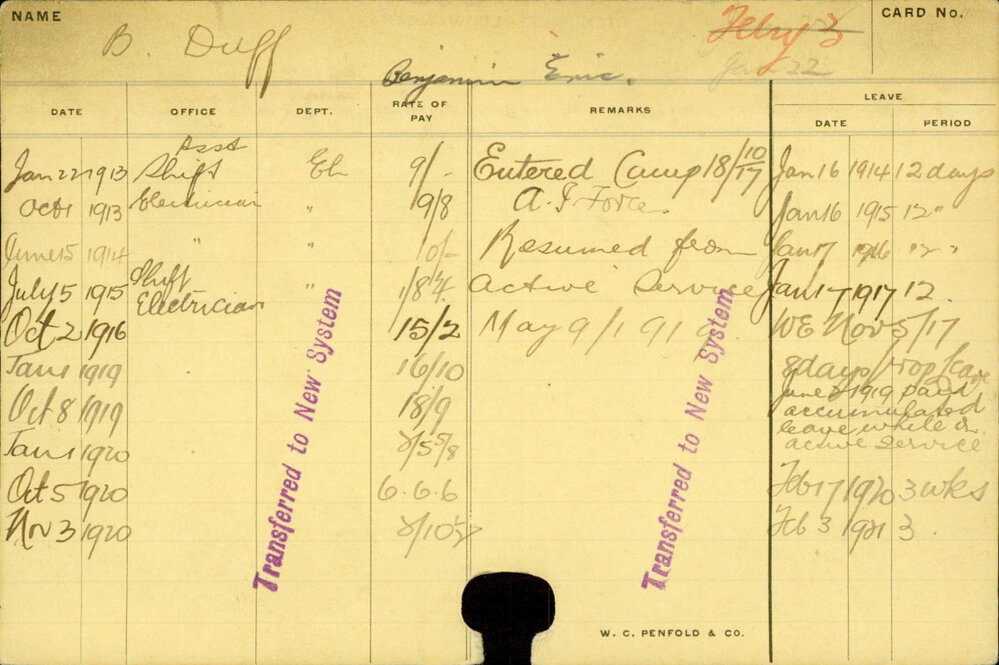 NAME
B. Duff
Benjamin Eric.
Feby 3
Jan 22
CARD No.
DATE OFFICE DEPT. RATE OF PAY REMARKS LEAVE
DATE PERIOD
Asst
Jan 22 1913 Shift El 9/- Entered Camp 18/10/17 Jan 16 1914 12 days
Oct 1 1913 Electrician " 9/8 A. I Force. Jan 16 1915 12 "
June 15 1914 " " 10/- Resumed from Jan 17 1916 12 "
July 5 1915 Shift Electrician " Active Service Jan 17 1917 12.
Oct 2 1916 15/2 May 9/1919 WE Nov 5/17
Jan 1 1919 16/10 8 days prop leave
Oct 8 1919 18/9 June 1919 paid
accumulated
leave while on
active service
Jan 1 1920
Oct 5 1920 6.6.6 Feb 17 1920 3 wks
Nov 3 1920 Feb 3 1921 3
Transferred to New System
Transferred to New System
W. C. PENFOLD & CO.